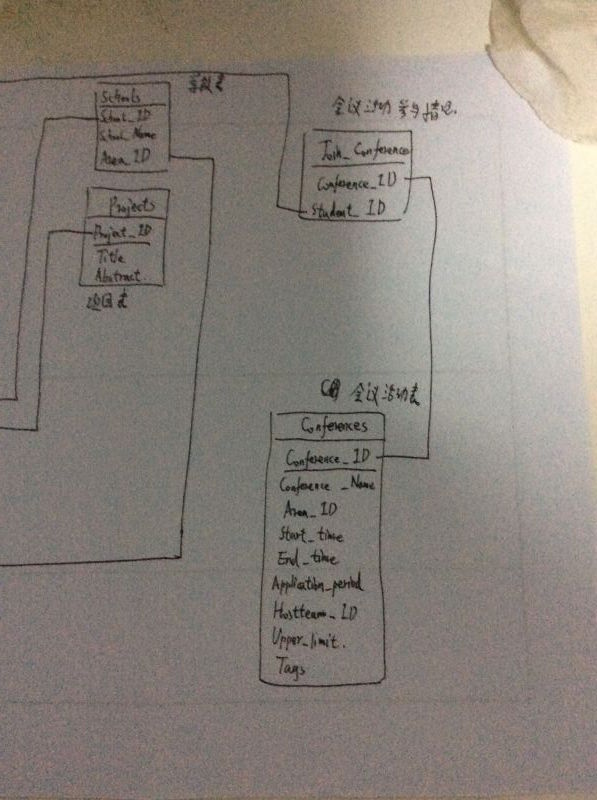 学校表
Schools
School_ID
School_Name
Area_ID
Projects
Project_ID
Title
Abstract
项目表
会议活动参与情况
Join_Conference
Conference_ID
Student_ID
会议活动表
Conferences
Conference_ID
Conference_Name
Area_ID
Start_time
End_time
Application_period
Hostteam_ID
Upper_limit.
Tags